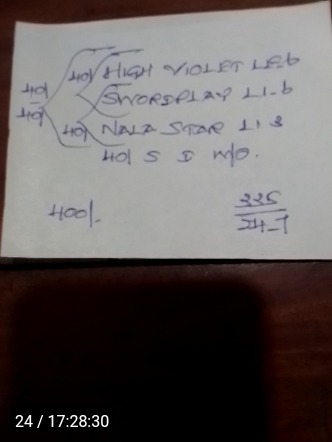 40/ HIGH VIOLET LE6
40/
SWORDPLAY L1-6
40/
40/ NALA STAR L1 3
40/ S D W/O.
400/-
335
24-7
24 / 17:28:30